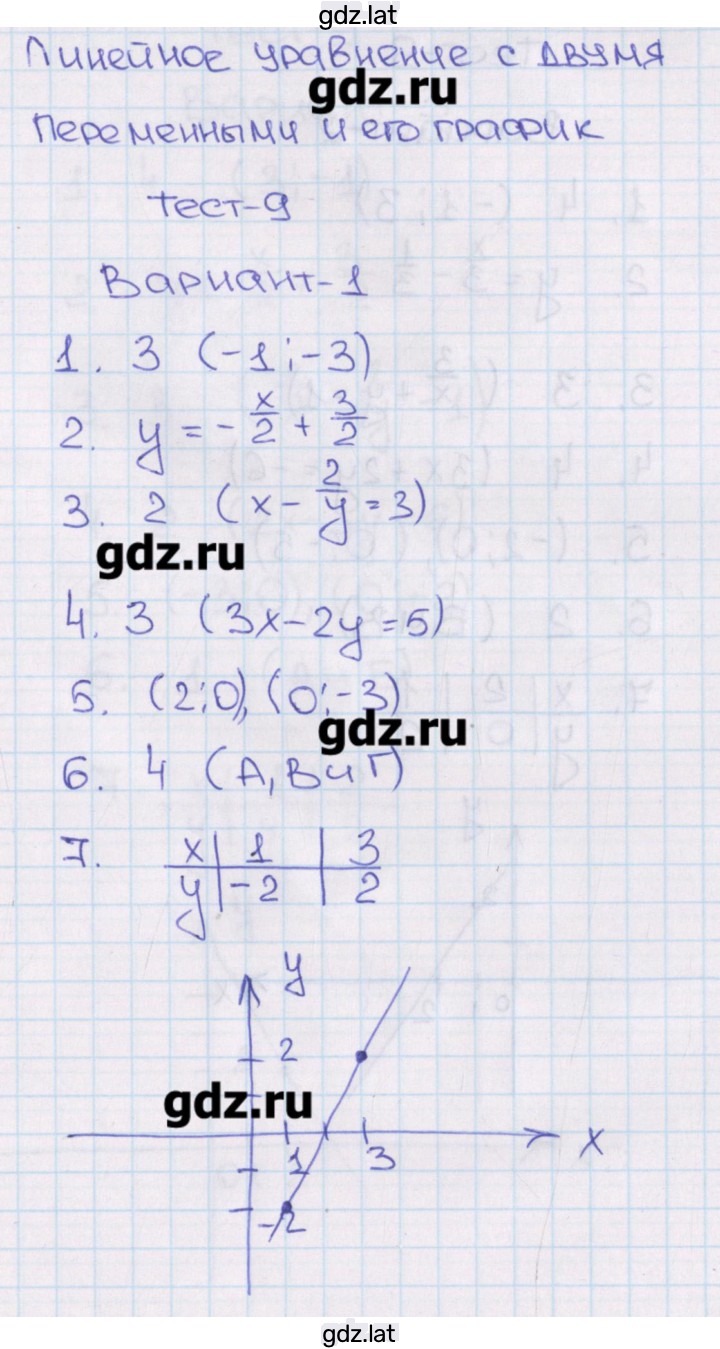 gdz.lat
Линейное уравнение с двумя
gdz.ru
переменными и его график
тест-9
Вариант-1
1. 3 (-1;-3)
2. y = - x/2 + 3/2
3. 2 (x - 2/y = 3)
gdz.ru
4. 3 (3x-2y=5)
5. (2;0), (0;-3)
gdz.ru
6. 4 (А, В и Г)
7. x | 1 | 3
y | -2 | 2
y
2
gdz.ru
1 3 x
-2
gdz.lat